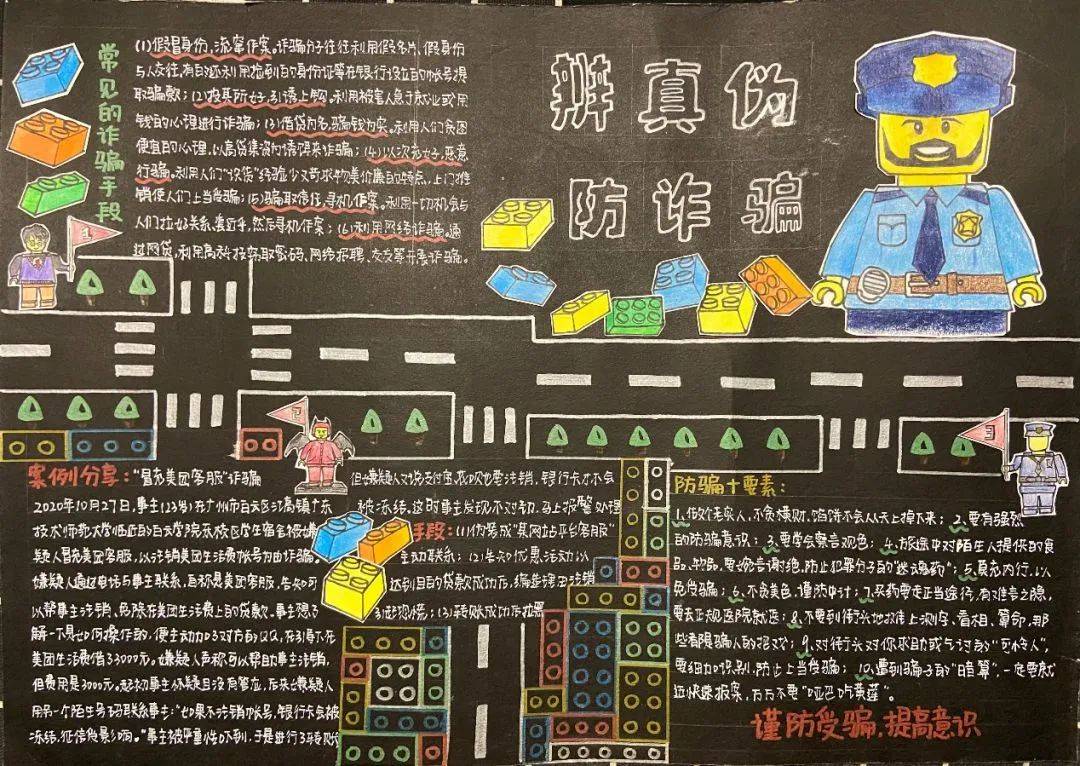 辨真伪
防诈骗
常见的诈骗手段
(1)假冒身份,流窜作案。诈骗分子往往利用假名片、假身份
与人交往,有的还利用捡到的身份证等在银行设立的帐号提
取骗款;(2)投其所好,引诱上钩。利用被害人急于就业或用
钱的心理进行诈骗;(3)借贷为名,骗钱为实。利用人们贪图
便宜的心理,以高贷集资为诱饵来诈骗;(4)以次充好,恶意
行骗。利用人们"识货"经验少又苛求物美价廉的特点,上门推
销使人们上当受骗;(5)骗取信任,寻机作案。利用一切机会与
人们拉近关系,套近乎,然后寻机作案;(6)利用网络诈骗。通
过网贷,利用高科技窃取密码、网络招聘、交友等开展诈骗。
1
2
3
案例分享:"冒充美团客服"诈骗
2020年10月27日,事主(23岁)在广州市白云区江高镇广东
技术师范大学临近的白云学院东校区学生宿舍被嫌
疑人冒充美团客服,以注销美团生活费帐号为由诈骗。
嫌疑人通过电话与事主联系,自称是美团客服,告知可
以帮事主注销,免除在美团生活费上的贷款,事主想了
解一下是如何操作的,便主动加了对方的QQ,在引导下先
美团生活费借了3000元。嫌疑人声称可以帮助事主注销,
但费用是3000元。起初事主怀疑且没有答应,后来嫌疑人
用另一个陌生号码联系事主:"如果不注销帐号,银行卡会被
冻结,征信货是影响。"事主被严重性吓到,于是进行了转账
但嫌疑人又说支付宝、花呗也要注销,银行卡才不会
被冻结,这时事主发现不对劲,马上报警处理
手段:(1)伪装成"某网站平台客服"
主动联系;(2)告知优惠活动以
达到目的贷款成功后,编造理由注销
引起恐慌;(3)转账成功后拉黑
防骗十要素:
1、做个老实人,不贪横财,馅饼不会从天上掉下来;2、要有强烈
的防骗意识;3、要学会察言观色;4、旅途中对陌生人提供的食
品、物品,要婉言谢绝,防止犯罪分子的"迷魂药";5、莫充内行,以
免受骗;6、不贪美色,谨防中计;7、买药要走正当途径,有难言之隐,
要去正规医院就医;8、不要到街头地摊上测字、看相、算命,那
些都是骗人的把戏;9、对街头对你求助或乞讨的"可怜人",
要细加识别,防止上当受骗;10、遭到骗子的"暗算",一定要就
近快速报案,万万不要"哑巴吃黄莲"。
谨防受骗,提高意识